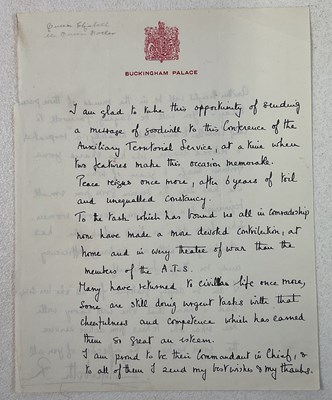 Queen Elizabeth
the Queen Mother
BUCKINGHAM PALACE
I am glad to take this opportunity of sending
a message of goodwill to this Conference of the
Auxiliary Territorial Service, at a time when
two features make this occasion memorable.
Peace reigns once more, after 6 years of toil
and unequalled constancy.
To the task which has bound us all in comradeship
none have made a more devoted contribution, at
home and in every theatre of war than the
members of the A.T.S.
Many have returned to civilian life once more,
Some are still doing urgent tasks with that
cheerfulness and competence which has earned
them so great an esteem.
I am proud to be their Commandant in Chief, &
to all of them I send my best wishes & my thanks.